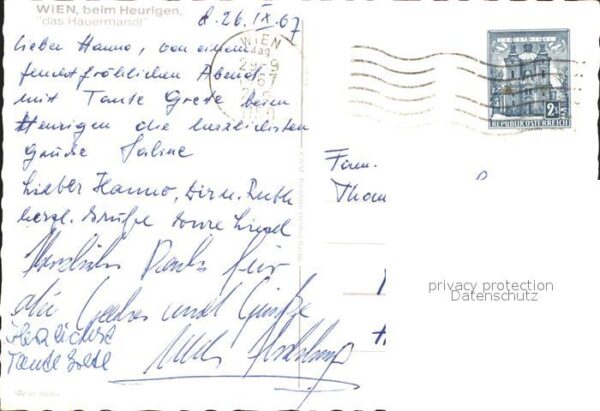 WIEN, beim Heurigen,
"das Hauermandl"
d. 26. IX. 67
Lieber Hanno, von einem
feuchtfröhlichen Abend
mit Tante Grete beim
Heurigen die herzlichsten
Grüße
Lieber Hanno, Dir u. Ruth
herzl. Grüße
Herzlichen Dank für
die und Grüße
Herzlichst
Tante Grete
WIEN
2.50
REPUBLIK ÖSTERREICH
Fam.
Thom
privacy protection
Datenschutz